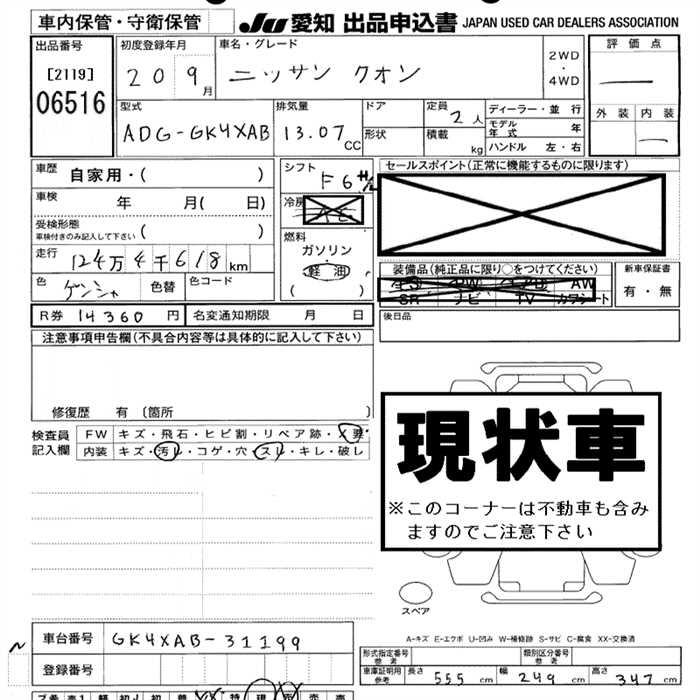 車内保管・守衛保管 JU 愛知 出品申込書 JAPAN USED CAR DEALERS ASSOCIATION
出品番号 初度登録年月 車名・グレード 評価点
[2119] 20 9月 ニッサン クオン 2WD・4WD
06516
型式 排気量 ドア 定員 2人 ディーラー・並行 外装 内装
ADG-GK4XAB 13.07CC 形状 積載 kg モデル年式 年
ハンドル 左・右
車歴 自家用・( ) シフト F6 セールスポイント(正常に機能するものに限ります)
車検 年 月( 日) 冷房
受検形態
車検付きのみ記入して下さい ( ) 燃料
ガソリン・
走行 124万4千618km 軽油 装備品(純正品に限り○をつけてください) 新車保証書
色 ゲンシャ 色替 色コード ( ) SR ナビ TV カワシート 有・無
AW
R券 14360円 名変通知期限 月 日 後日品
注意事項申告欄(不具合内容等は具体的に記入して下さい)
修復歴 有(箇所 )
検査員 FW キズ・飛石・ヒビ割・リペア跡・X要
記入欄 内装 キズ・汚レ・コゲ・穴・スレ・キレ・破レ
現状車
※このコーナーは不動車も含み
ますのでご注意下さい
スペア
A-キズ E-エクボ U-凹み W-補修跡 S-サビ C-腐食 XX-交換済
車台番号 GK4XAB-31199
登録番号
形式指定番号 参考 類別区分番号 参考
車庫証明用 参考 長さ 555 cm 幅 249 cm 高さ 347 cm